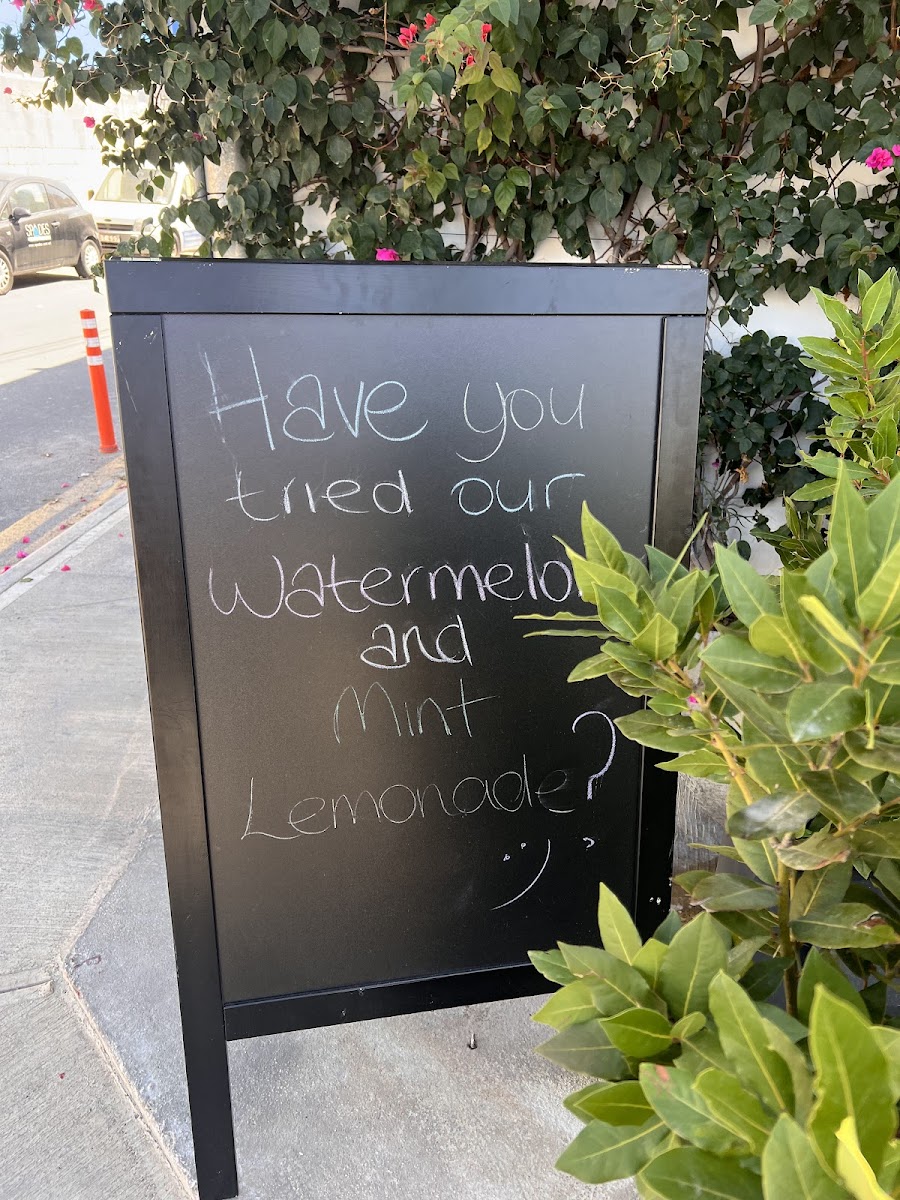 Have you
tried our
Watermelon
and
Mint
Lemonade?
:)
SPADES